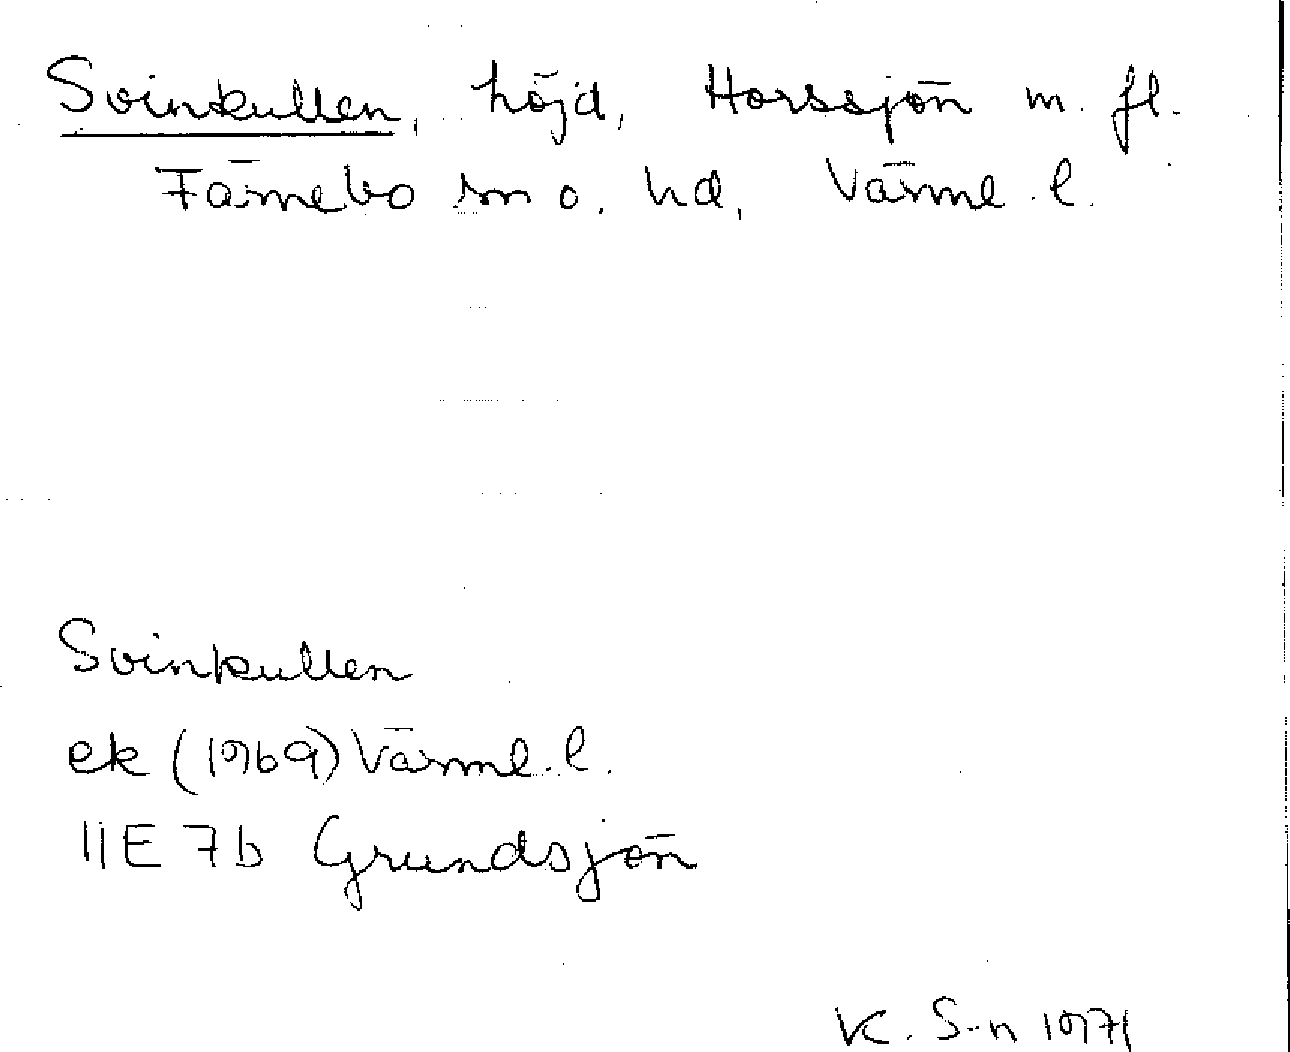 Svinkullen, höjd, Horssjön m. fl.
Färnebo sn o. hd, Värml. l.
Svinkullen
ek (1969) Värml. l.
11E 7b Grundsjön
K. S-n 1971